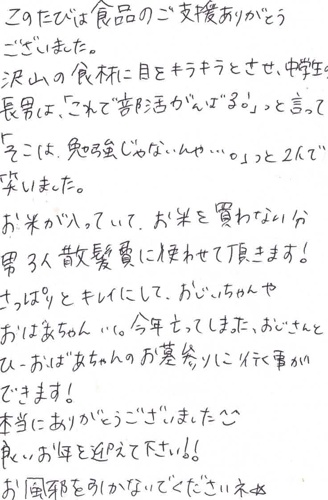 このたびは食品のご支援ありがとう
ございました。
沢山の食材に目をキラキラとさせ、中学生の
長男は、「これで部活がんばる!」っと言って
「そこは、勉強じゃないんや…。」っと2人で
笑いました。
お米が入っていて、お米を買わない分
男3人散髪費に使わせて頂きます!
さっぱりとキレイにして、おじいちゃんや
おばあちゃん…。今年亡ってしまった、おじさんと
ひーおばあちゃんのお墓参りに行く事が
できます!
本当にありがとうございました
良いお年を迎えて下さい!!
お風邪を引かないでくださいネ☆